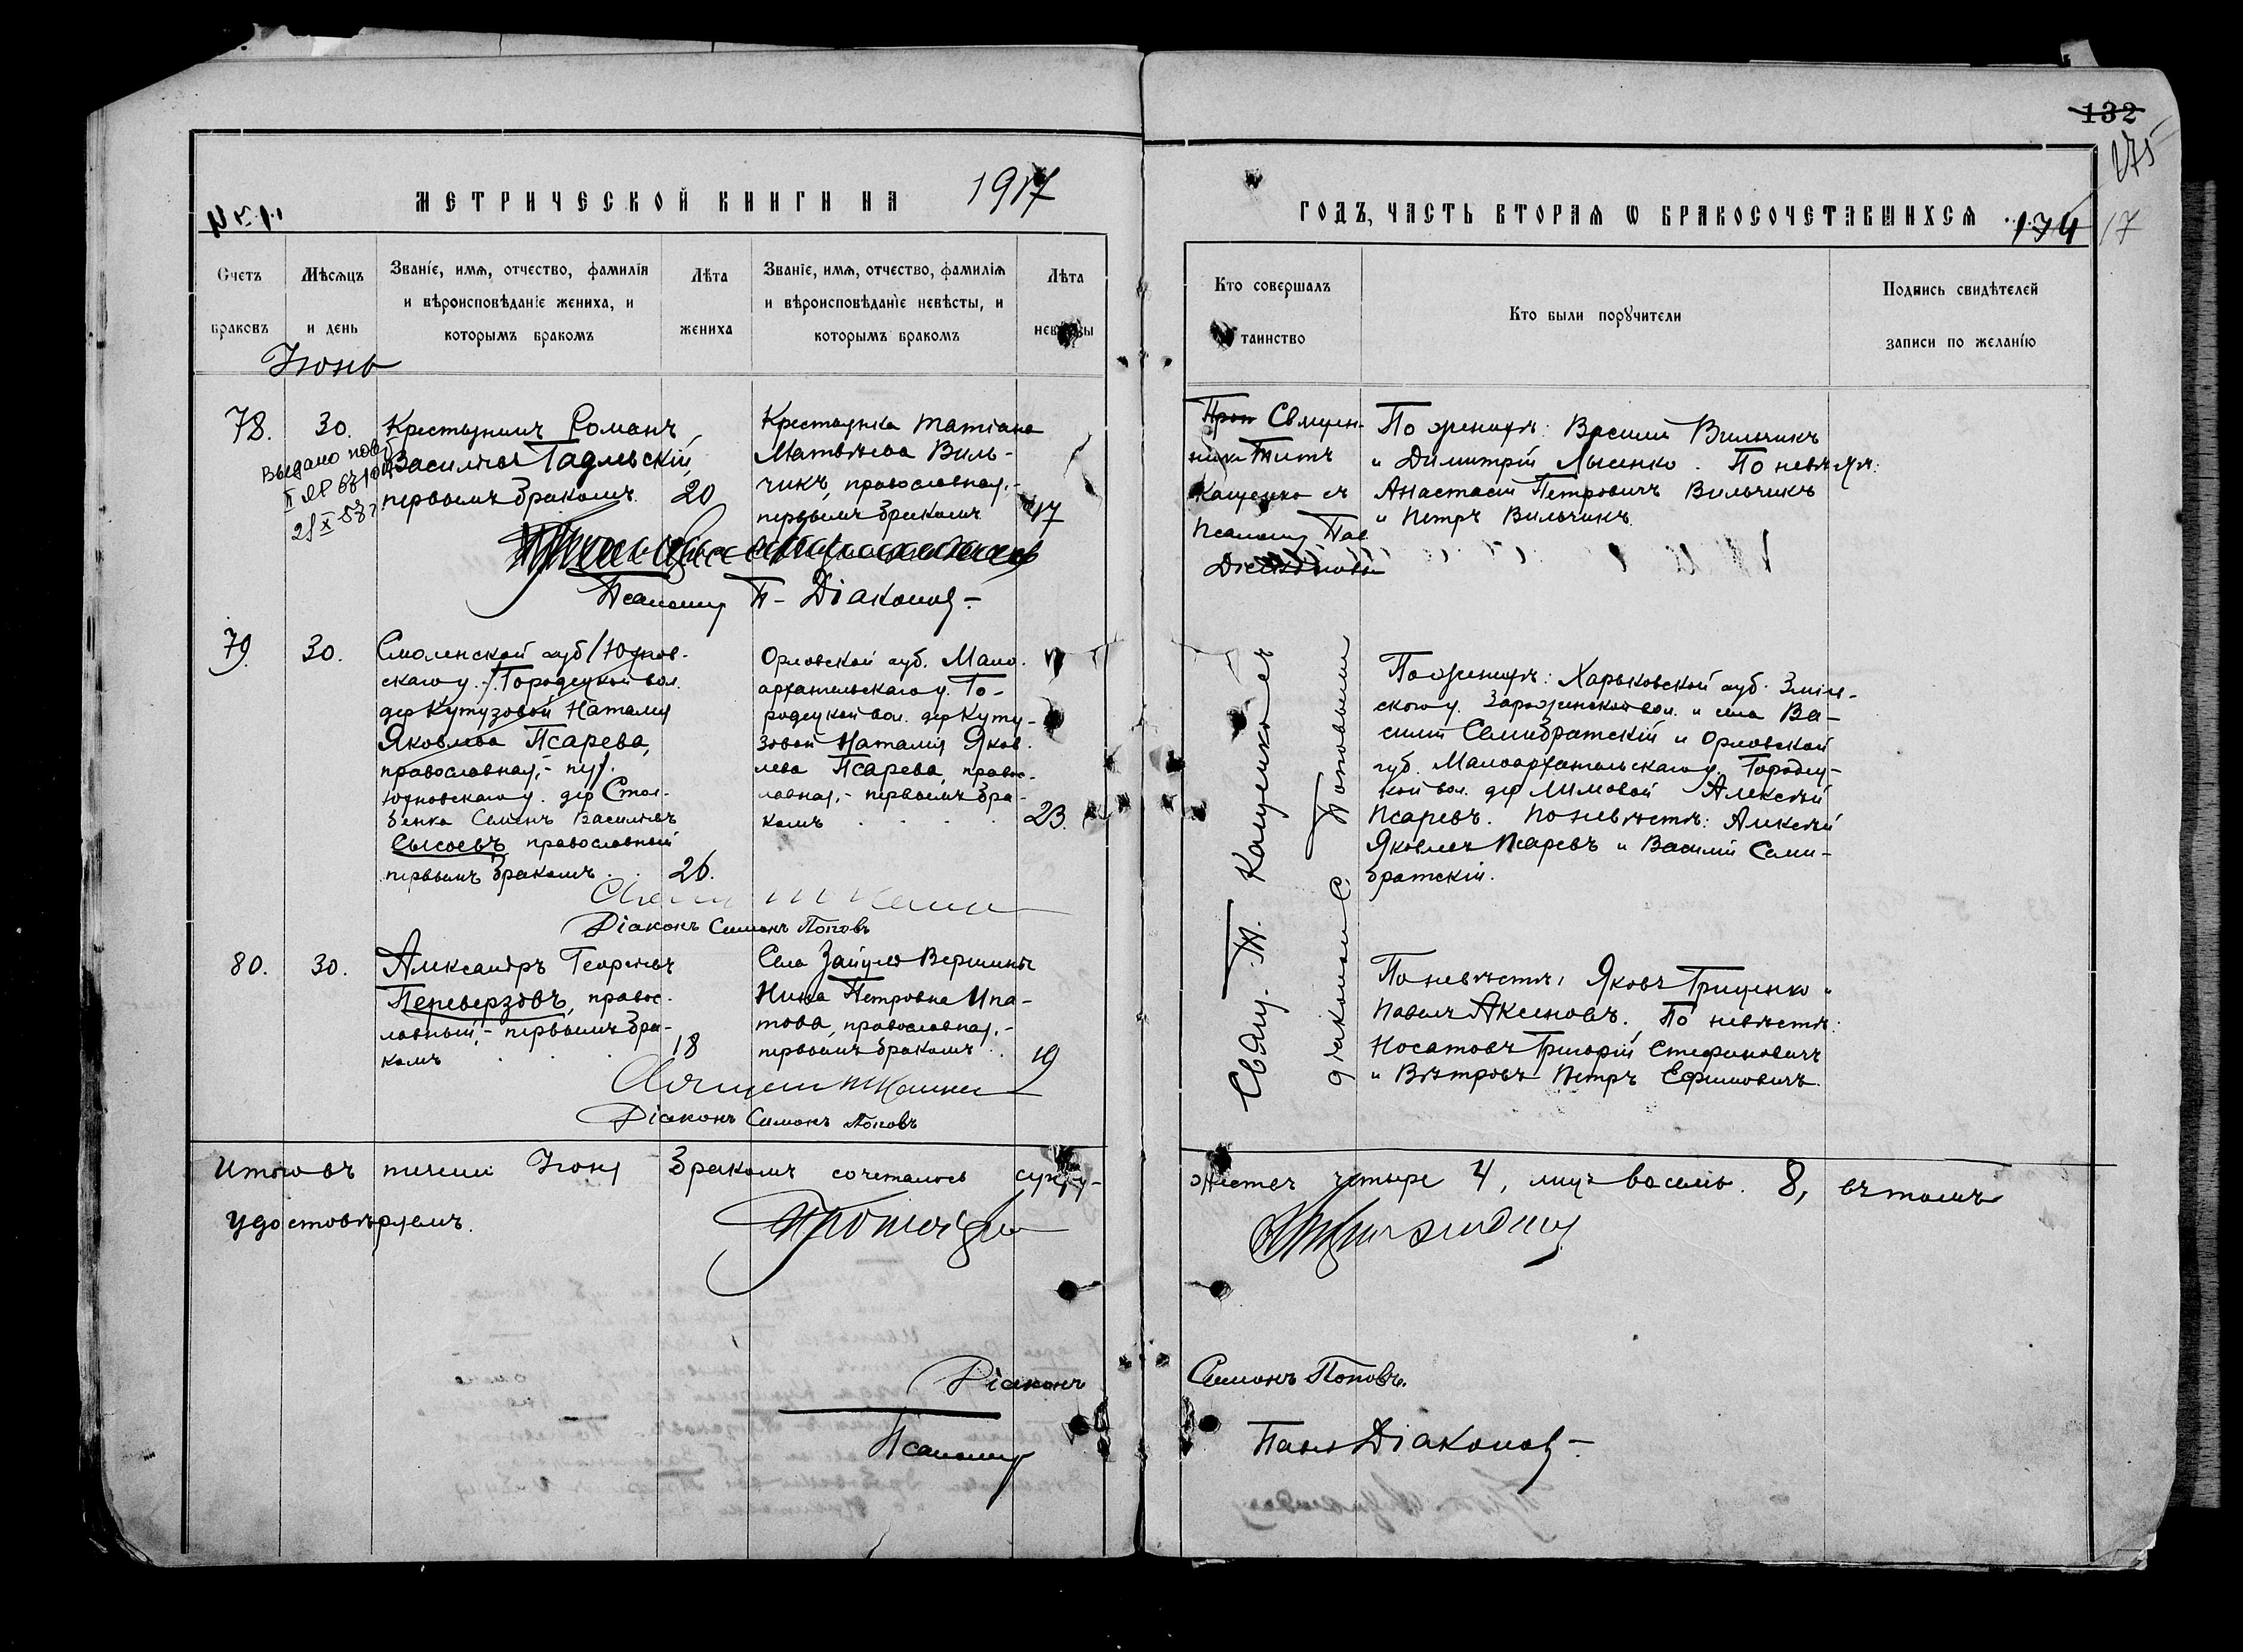 132
275
МЕТРИЧЕСКОЙ КНИГИ НА 1917
ГОДЪ, ЧАСТЬ ВТОРАЯ Ѡ БРАКОСОЧЕТАВШИХСЯ
134
17
Счетъ браковъ
Мѣсяцъ и день
Званіе, имя, отчество, фамилія
и вѣроисповѣданіе жениха, и
которымъ бракомъ
Лѣта
жениха
Званіе, имя, отчество, фамилія
и вѣроисповѣданіе невѣсты, и
которымъ бракомъ
Лѣта
невѣсты
Кто совершалъ
таинство
Кто были поручители
Подпись свидѣтелей
записи по желанію
Іюнь
78.
30.
Выдано
21 X
Крестьянинъ Романъ
Васильевъ Гадльскій,
первымъ бракомъ.
20
Крестьянка Татіана
Матвѣева Виль-
чикъ, православная,-
первымъ бракомъ
17
Священ-
никъ Титъ
Кащенко съ
Псаломщ.
По женихѣ: Василій Вильчикъ
и Димитрій Лысенко. По невѣстѣ:
Анастасій Петровичъ Вильчикъ
и Петръ Вильчикъ.
Псаломщ П- Діаконов-
79.
30.
Смоленской губ. Юхнов-
скаго у. Городецкой вол.
дер Кутузовой Наталия
Яковлева Псарева,
православная,-
Юхновскаго у. дер Стол-
бенка Семенъ Васильевъ
Сысоевъ православный
первымъ бракомъ
26.
Орловской губ. Мало-
архангельскаго у. Го-
родецкой вол. дер Куту-
зовой Наталія Яков-
лева Псарева, правос-
лавная,- первымъ бра-
комъ
23.
Свящ. Т. Кащенко съ
діакономъ С. Поповымъ
По женихѣ: Харьковской губ. Зміев-
скаго у. вол. и села Ва-
силій Семибратскій и Орловской
губ. Малоархангельскаго у. Городец-
кой вол. дер Алексѣй
Псаревъ. По невѣстѣ: Алексѣй
Яковлевъ Псаревъ и Василій Семи-
братскій.
Діаконъ Симонъ Поповъ
80.
30.
Александръ Георгіевъ
Переверзовъ, правос-
лавный,- первымъ бра-
комъ
18
Села Вершины
Нина Петровна Ипа-
това, православная,-
первымъ бракомъ
19
По невѣстѣ: Яковъ Гриценко и
Павелъ Аксеновъ. По невѣстѣ:
Носатовъ Григорій Стефановичъ
и Вѣтровъ Петръ Ефимовичъ.
Діаконъ Симонъ Поповъ
Итого въ теченіи Іюня бракомъ сочеталось супру-
жествъ четыре 4, лицъ восемь 8, въ томъ
удостовѣряемъ.
Діаконъ Симонъ Поповъ.
Псаломщ Павел Діаконов-